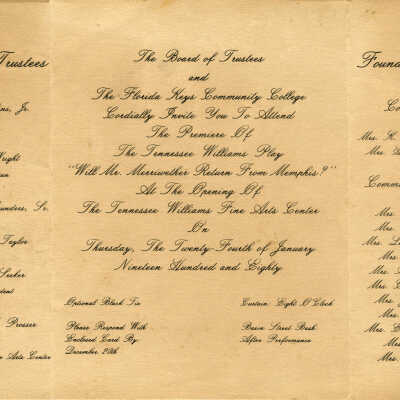 Trustees
ns, Jr.
Wright
unders, Sr.
Taylor
Seeker
dent
Presser
Arts Center
The Board of Trustees
and
The Florida Keys Community College
Cordially Invite You To Attend
The Premiere Of
The Tennessee Williams Play
"Will Mr. Merriwether Return From Memphis?"
At The Opening Of
The Tennessee Williams Fine Arts Center
On
Thursday, The Twenty Fourth of January
Nineteen Hundred and Eighty
Optional Black Tie
Curtain: Eight O'Clock
Please Respond With
Enclosed Card By
December 20th
Basin Street Bash
After Performance
Found
Co
Mrs. H.
Mrs.
Commu
Mrs.
Mrs.
Mrs. L
Mrs.
Mrs.
Mrs.
Mrs.
Mrs.
Mrs.
Mrs.
Mrs.